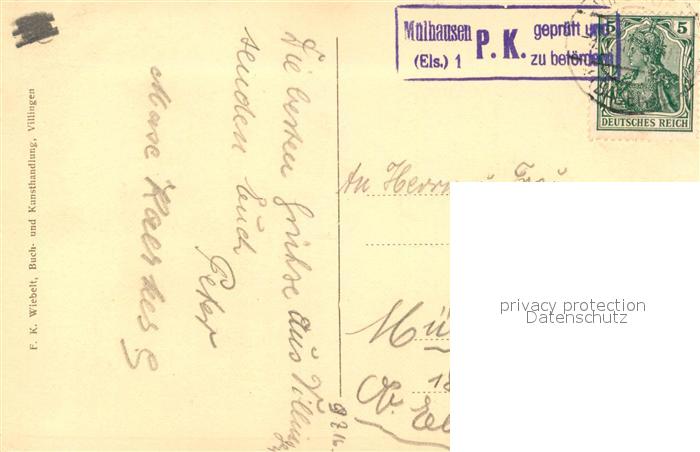 Mülhausen
(Els.) 1
P. K.
geprüft und
zu befördern
5 5
DEUTSCHES REICH
F. K. Wiebelt, Buch- und Kunsthandlung, Villingen
Die besten Grüße aus Villingen
senden Euch
Peter
An Herrn u.
Mül
privacy protection
Datenschutz